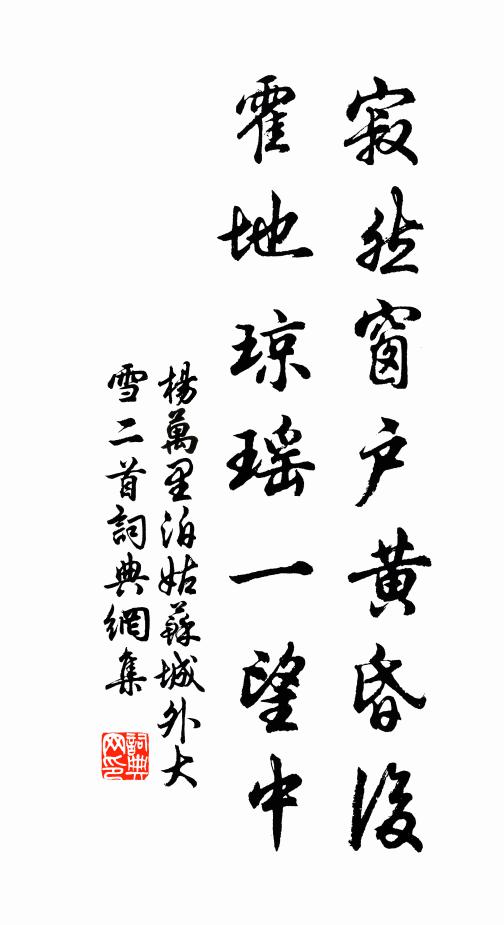 寂然窗户黄昏後
霍地琼瑶一望中
楊萬里泊姑蘇城外大
雪二首詞典網集
詞典
网印